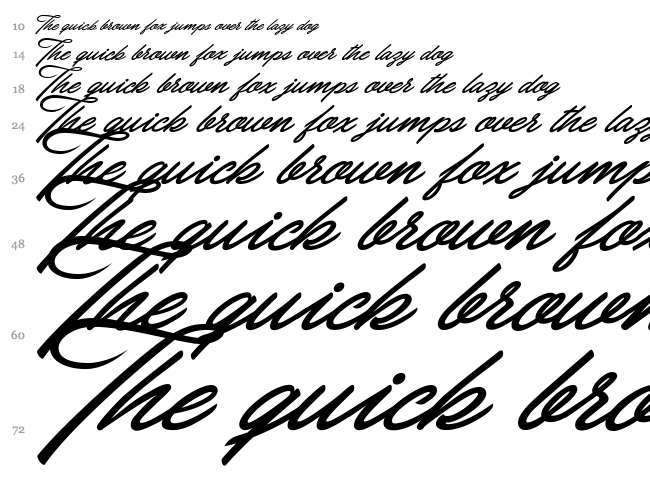 10 The quick brown fox jumps over the lazy dog
14 The quick brown fox jumps over the lazy dog
18 The quick brown fox jumps over the lazy dog
24 The quick brown fox jumps over the laz
36 The quick brown fox jump
48 The quick brown fo
60 The quick brown
72 The quick bro